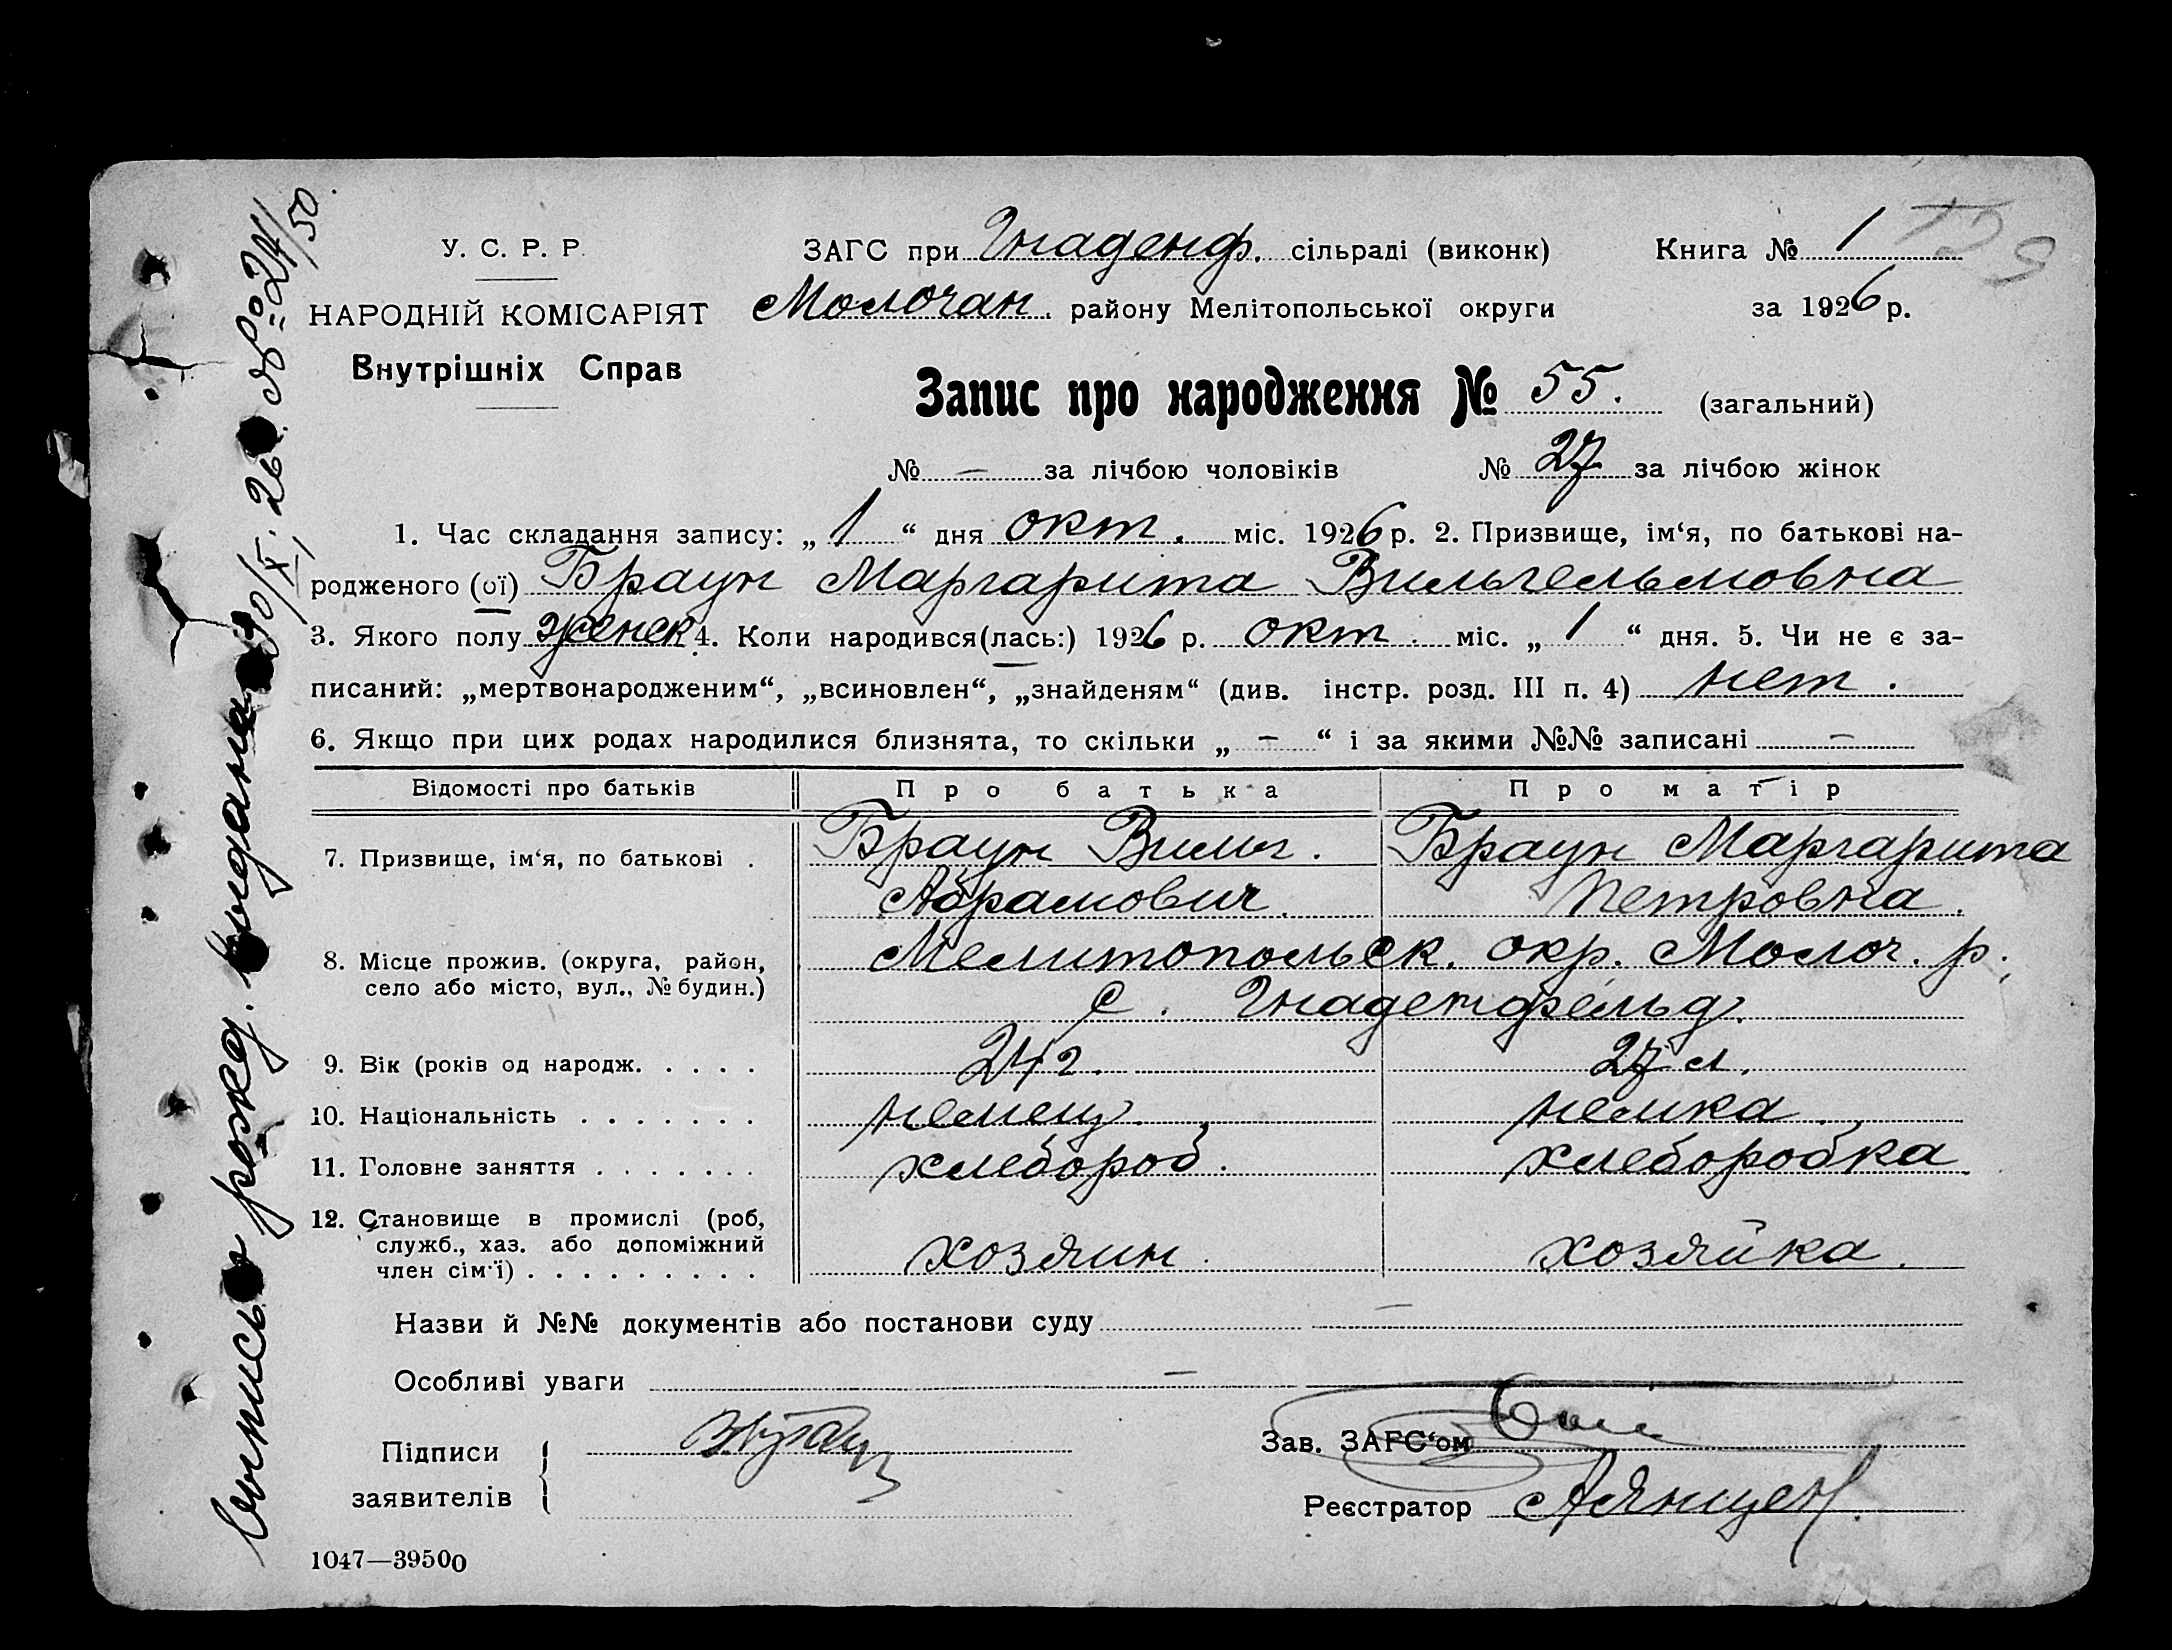 У. С. Р. Р.
НАРОДНІЙ КОМІСАРІЯТ
Внутрішніх Справ
ЗАГС при Гнаденф. сільраді (виконк)
Молочан. району Мелітопольської округи
Книга № 1
за 1926 р.
Запис про народження № 55. (загальний)
№ – за лічбою чоловіків № 27 за лічбою жінок
1. Час складання запису: „1“ дня окт. міс. 1926 р. 2. Призвище, ім‘я, по батькові на-
родженого (ої) Браун Маргарита Вильгельмовна
3. Якого полу женск 4. Коли народився(лась:) 1926 р. окт. міс. „1“ дня. 5. Чи не є за-
писаний: „мертвонародженим“, „всиновлен“, „знайденям“ (див. інстр. розд. III п. 4) нет.
6. Якщо при цих родах народилися близнята, то скільки „–“ і за якими №№ записані –
Відомості про батьків Про батька Про матір
7. Призвище, ім‘я, по батькові . Браун Вильг. Браун Маргарита
Абрамович. Петровна.
8. Місце прожив. (округа, район, Мелитопольск. окр. Молоч. р.,
село або місто, вул., № будин.) с. Гнаденфельд.
9. Вік (років од народж. . . . . 24 г. 27 л.
10. Національність . . . . . . . немец. немка
11. Головне заняття . . . . . . . хлебороб. хлеборобка.
12. Становище в промислі (роб,
служб., хаз. або допоміжний хозяин. хозяйка.
член сім‘ї) . . . . . . . . .
Назви й №№ документів або постанови суду –
Особливі уваги –
Підписи
заявителів
Зав. ЗАГС‘ом
Реєстратор АЯнцен.
1047—39500
Выпись о рожд. выдана 30/XI. 26. № 24/50.